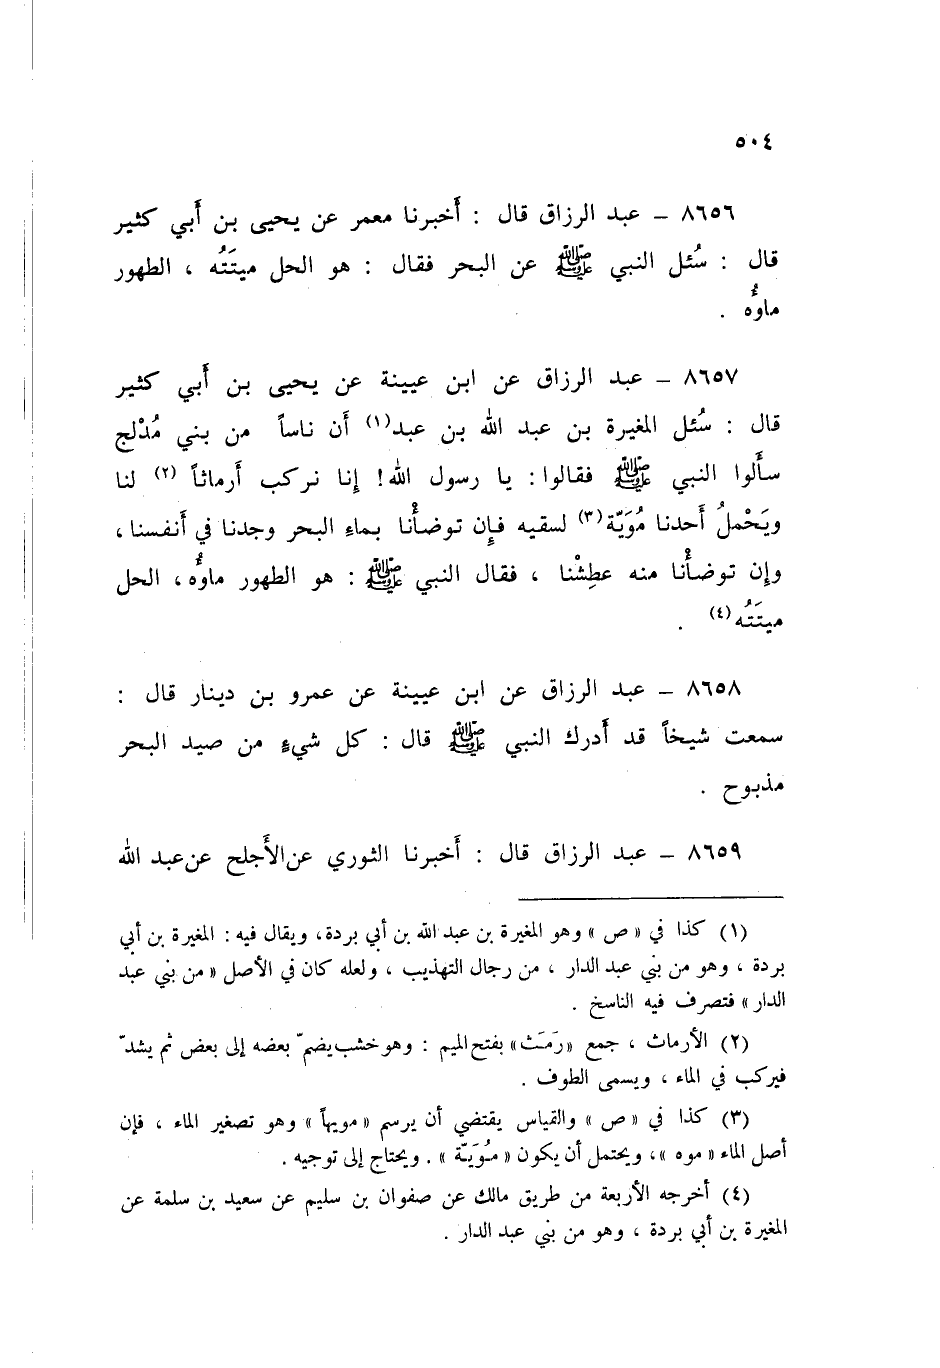 ٥٠٤
٨٦٥٦ – عبد الرزاق قال : أَخبرنا معمر عن يحيى بن أَبي كثير
قال : سُئل النبي ﷺ عن البحر فقال : هو الحل ميتَتُه ، الطهور
ماؤُه .
٨٦٥٧ – عبد الرزاق عن ابن عيينة عن يحيى بن أَبي كثير
قال : سُئل المغيرة بن عبد الله بن عبد(١) أَن ناساً من بني مُدْلج
سأَلوا النبي ﷺ فقالوا : يا رسول الله ! إنا نركب أَرماثاً (٢) لنا
ويَحْملُ أَحدنا مُوَيّة(٣) لسقيه فإن توضأْنا بماءِ البحر وجدنا في أَنفسنا ،
وإن توضأْنا منه عطِشْنا ، فقال النبي ﷺ : هو الطهور ماؤُه ، الحل
ميتَتُه(٤) .
٨٦٥٨ – عبد الرزاق عن ابن عيينة عن عمرو بن دينار قال :
سمعت شيخاً قد أَدرك النبي ﷺ قال : كل شيءٍ من صيد البحر
مذبوح .
٨٦٥٩ – عبد الرزاق قال : أَخبرنا الثوري عن الأَجلح عن عبد الله
(١) كذا في « ص » وهو المغيرة بن عبد الله بن أبي بردة ، ويقال فيه : المغيرة بن أبي
بردة ، وهو من بني عبد الدار ، من رجال التهذيب ، ولعله كان في الأصل « من بني عبد
الدار » فتصرف فيه الناسخ .
(٢) الأرماث ، جمع « رَمَث » بفتح الميم : وهو خشب يضمّ بعضه إلى بعض ثم يشدّ
فيركب في الماء ، ويسمى الطوف .
(٣) كذا في « ص » والقياس يقتضي أن يرسم « مويهاً » وهو تصغير الماء ، فإن
أصل الماء « موه » ، ويحتمل أن يكون « مُوَيَة » . ويحتاج إلى توجيه .
(٤) أخرجه الأربعة من طريق مالك عن صفوان بن سليم عن سعيد بن سلمة عن
المغيرة بن أبي بردة ، وهو من بني عبد الدار .